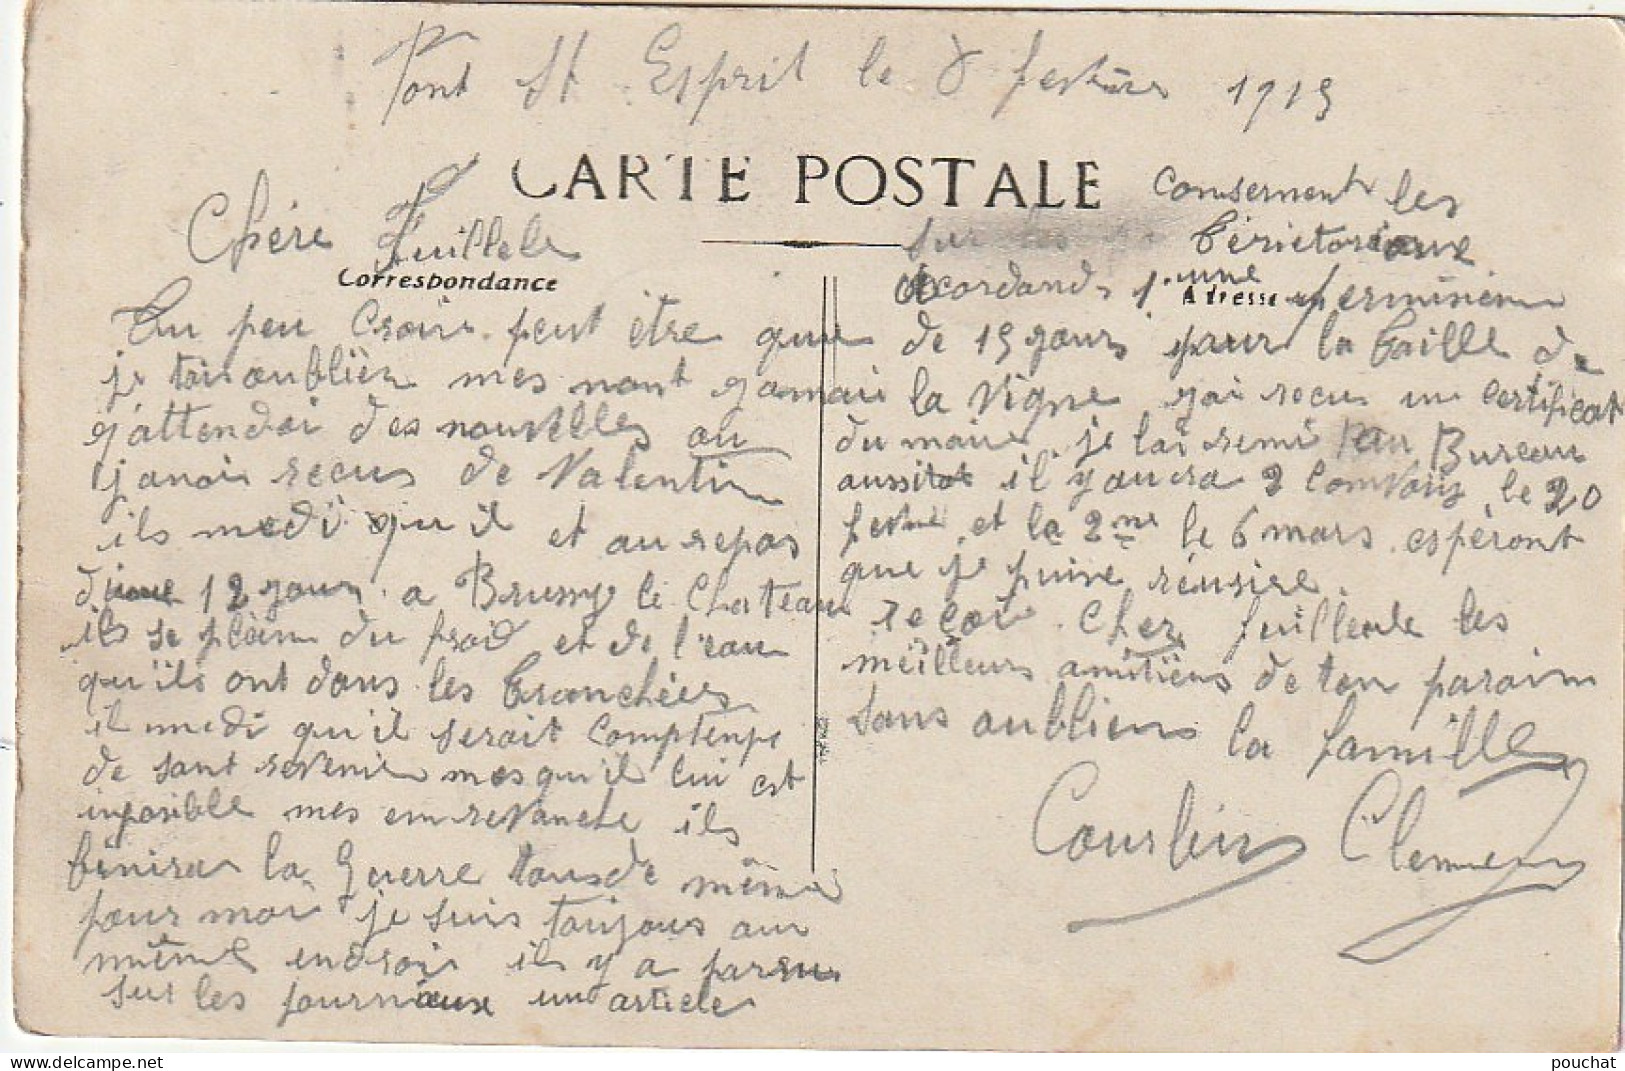 Pont St Esprit le 8 fevrier 1915
CARTE POSTALE
Chére fuillele
Correspondance
Tu peu croire peut être que
je tais oublièr mes nont jamais
j'attendai des nouvelles ou
j'avais recus de Valentin
ils medi qu'il et au repos
d'une 12 jours a Brussy le Chateau
ils se plain du froid et de l'eau
qu'ils ont dans les tranchées
il medi qu'il serait comptenpt
de sant revenir mes qu'il lui est
inposible mes em revanche ils
finira la Guerre tousde même
pour moi je suis toujous au
même endroit ils y a parru
sur les journaux un article
comsernent les
sur les territoriaux
Adresse
acordands 1 une permision
de 15 jours pour la taille de
la vigne j'ai recu un certificat
du maire je lai remi au Bureau
aussitot il y aura 2 convois le 20
fevrie et le 2me le 6 mars espèront
que je puise réusire
reçoi Cher fuilleule les
meilleurs amitiéns de ton parain
sans oublier la famille
Courbier Clement
www.delcampe.net
pouchat